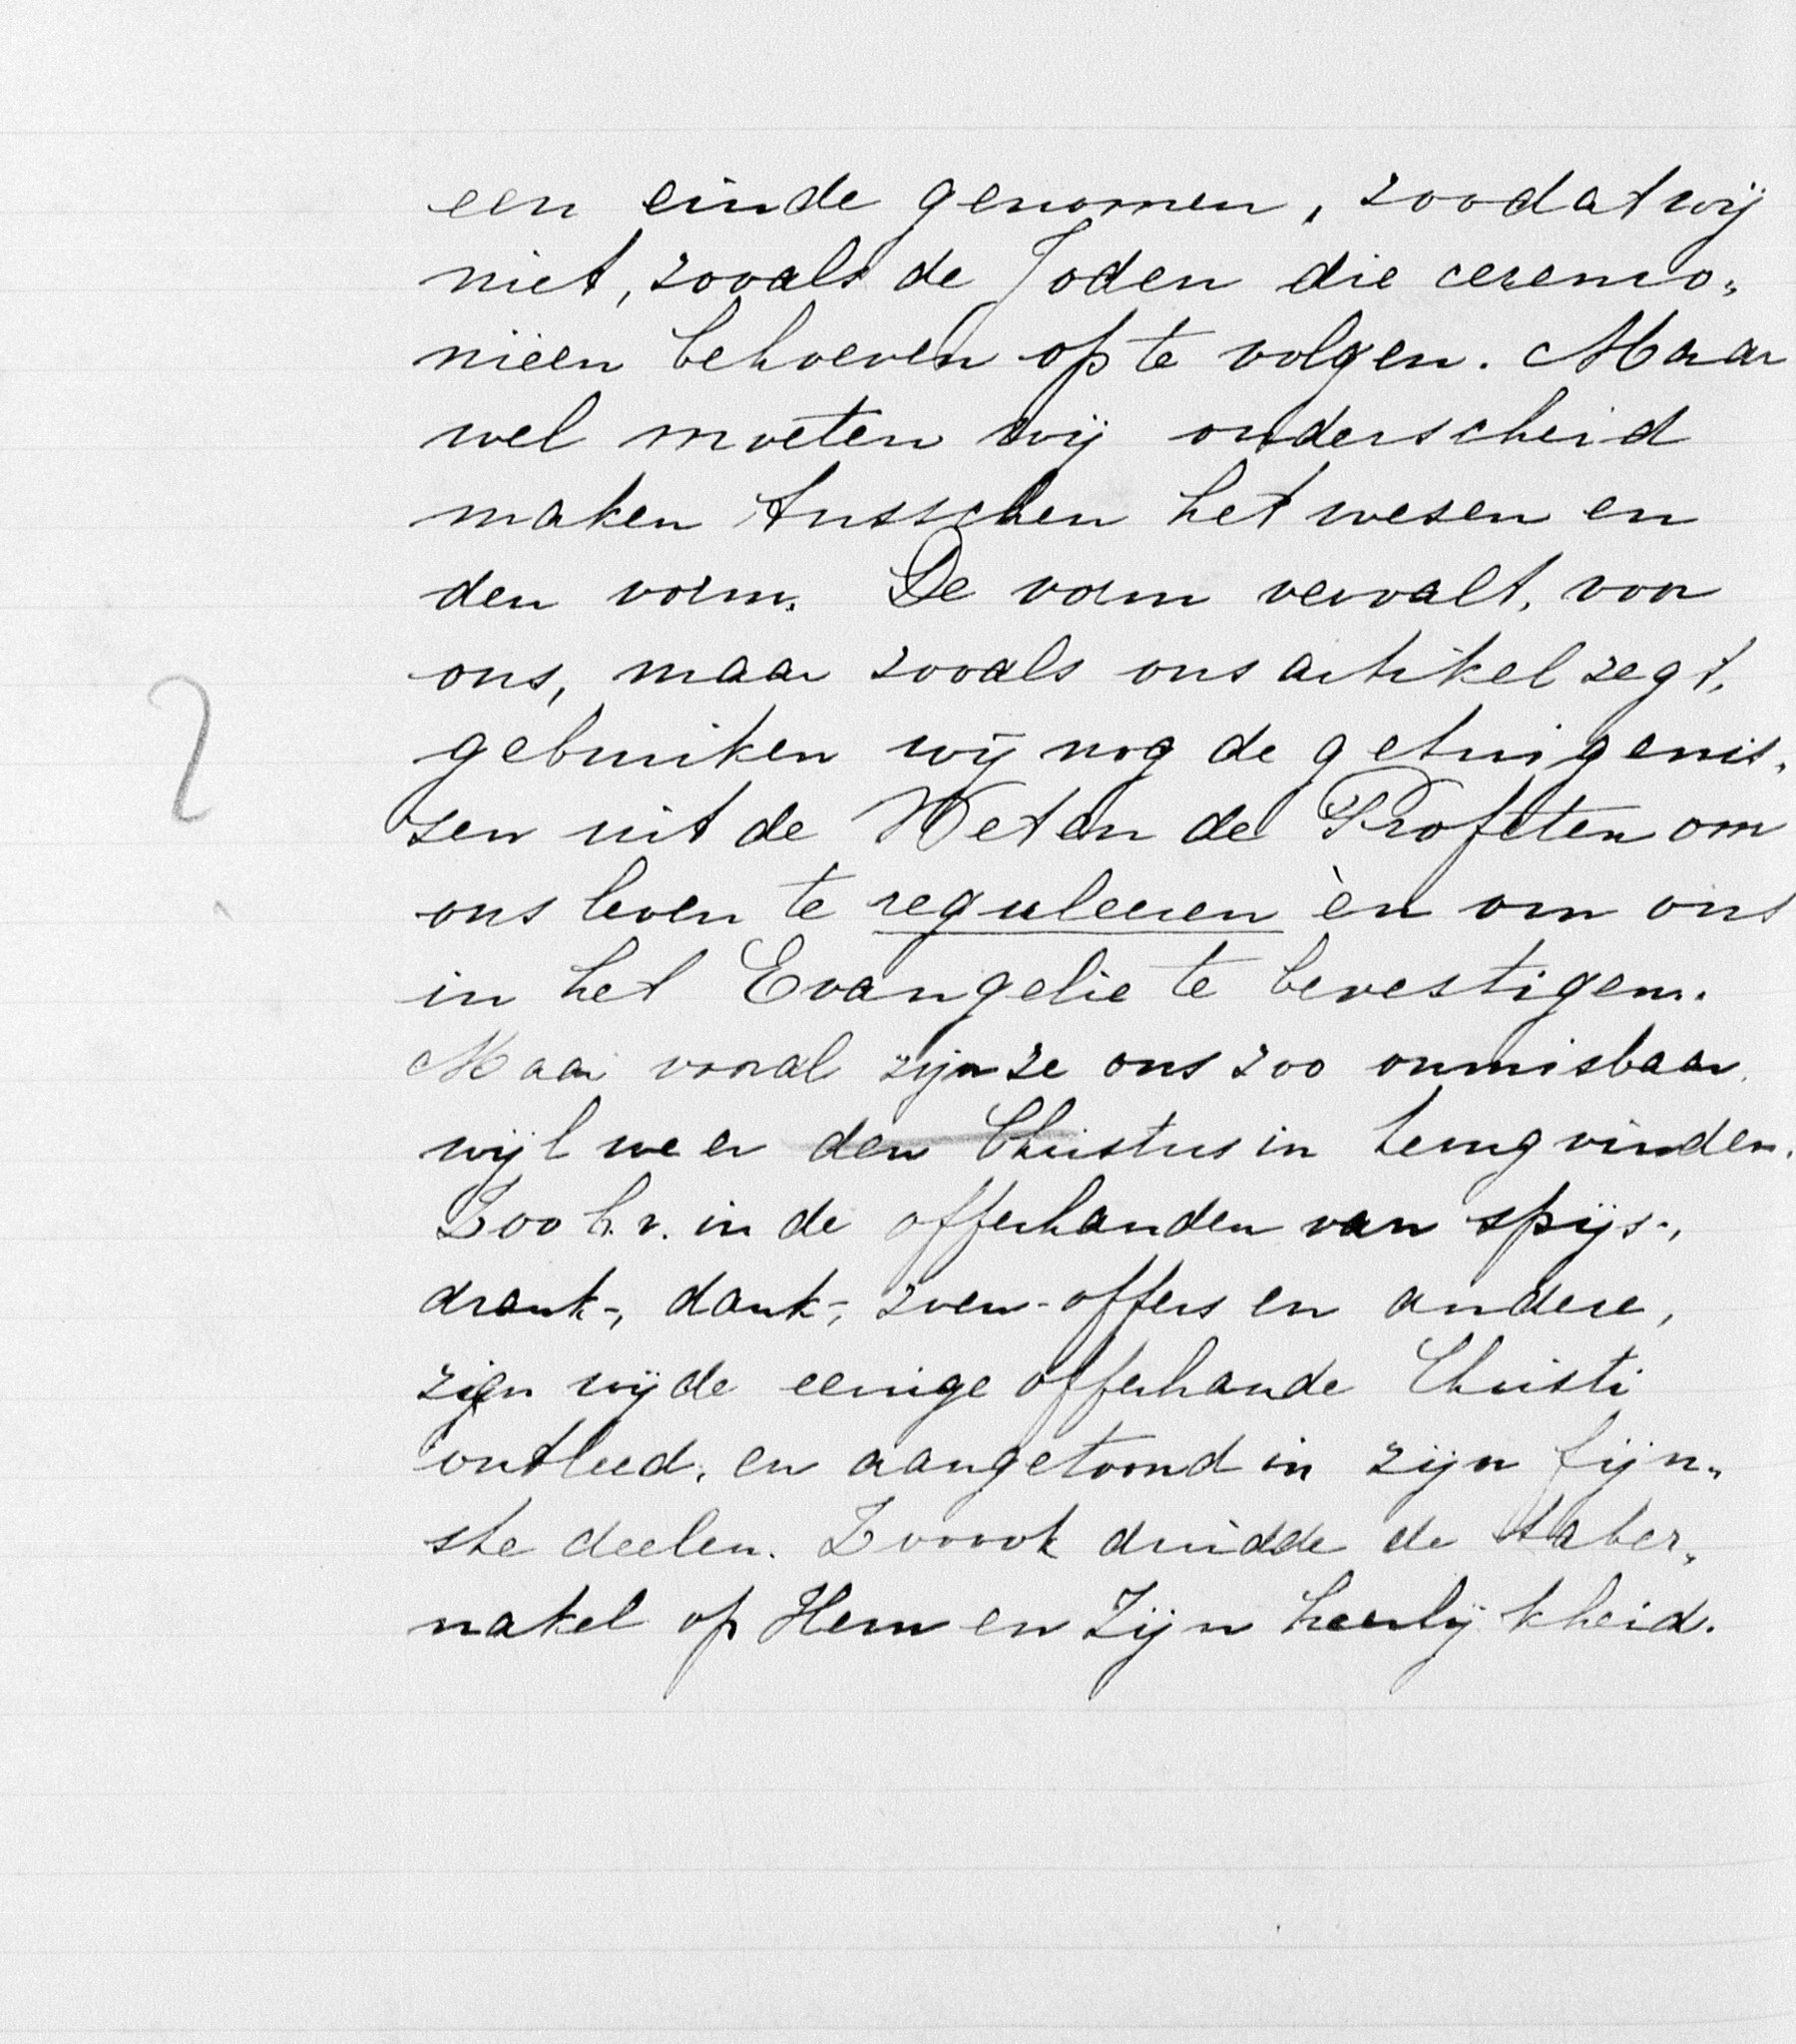 een einde genomen, zoodat wij
niet, zooals de Joden die ceremo„
niëen behoeven op te volgen. Maar
wel moeten wij onderscheid
maken tusschen het wesen en
den vorm. De vorm vervalt, voor
ons, maar zooals ons artikel zegt,
gebruiken wij nog de getuigenis„
sen uit de Wet en de Profeten om
ons leven te reguleeren èn om ons
in het Evangelie te bevestigen.
Maar vooral zijn ze ons zoo onmisbaar,
wijl we er den Christus in terugvinden.
Zoo b.v. in de offerhanden van spijs-,
drank-, dank-, zoen-offers en andere,
zien wij de eenige offerhande Christi
ontleed, en aangetoond in zijn fijn„
ste deelen. Zoo ook duidde de taber„
nakel op Hem en Zijn heerlijkheid.
?